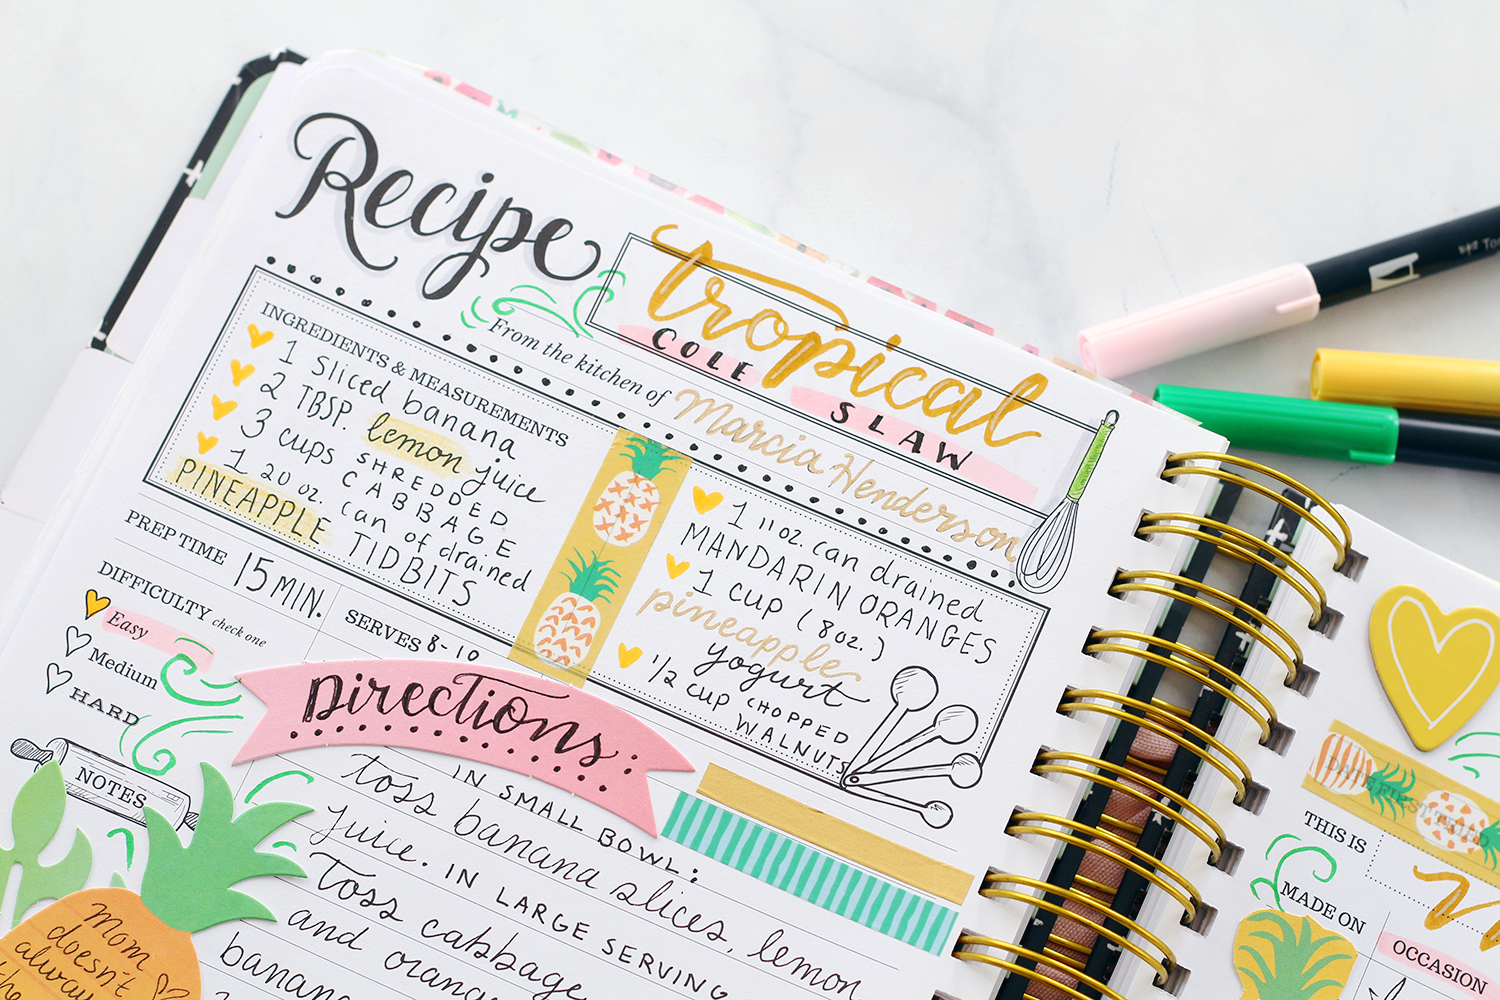 Recipe
tropical
COLE SLAW
From the kitchen of Marcia Henderson
INGREDIENTS & MEASUREMENTS
1 sliced banana
2 TBSP. lemon juice
3 cups SHREDDED CABBAGE
1 20 oz. can of drained
PINEAPPLE TIDBITS
1 11oz. can drained
MANDARIN ORANGES
1 CUP (8oz.)
pineapple
yogurt
1/2 CUP CHOPPED
WALNUTS
PREP TIME 15 MIN.
SERVES 8-10
DIFFICULTY check one
Easy
Medium
HARD
NOTES
Mom
doesn't
always
Directions:
IN SMALL BOWL:
toss banana slices, lemon
juice. IN LARGE SERVING
Toss cabbage
and
banana
THIS IS
MADE ON
OCCASION